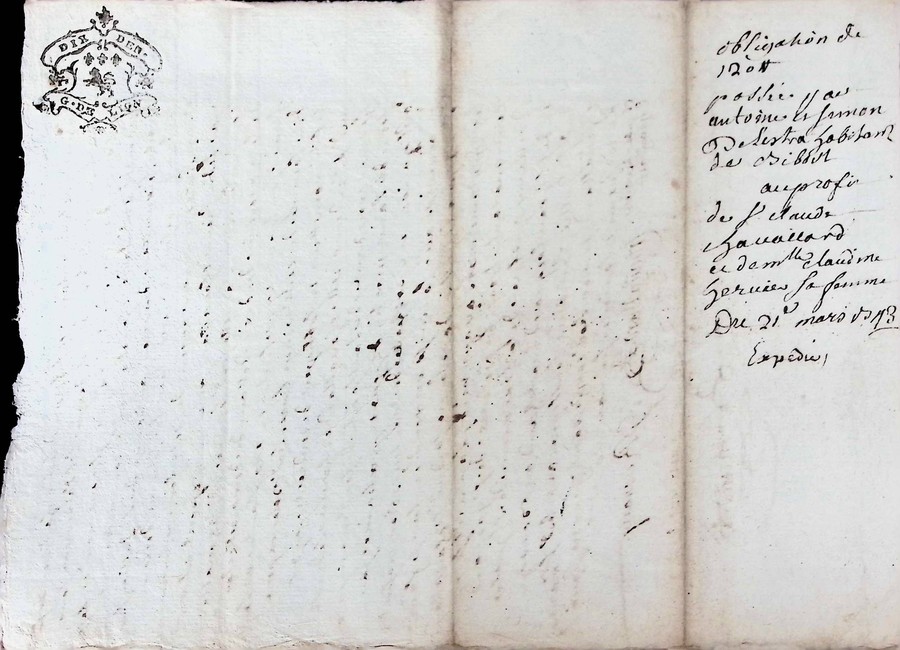 DIX DEN.
G. DE LYON
obligation de
120 ₶
passée par
antoine et simon
Delestra habitant
de
au profit
de Sr claude
chavallard
et de mlle claudine
hervier sa femme
Du 21e mars 1743
Expédié,